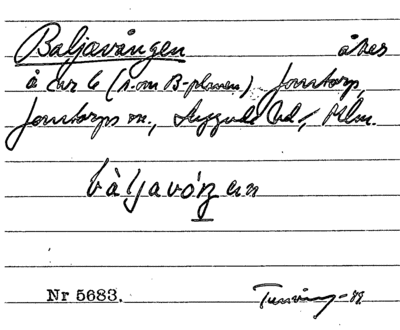 Baljavången åker
å Lar 6 (n. om B-planen) Jonstorp,
Jonstorps sn., Luggude hd, Mlm.
bàljavóŋen
Nr 5683.